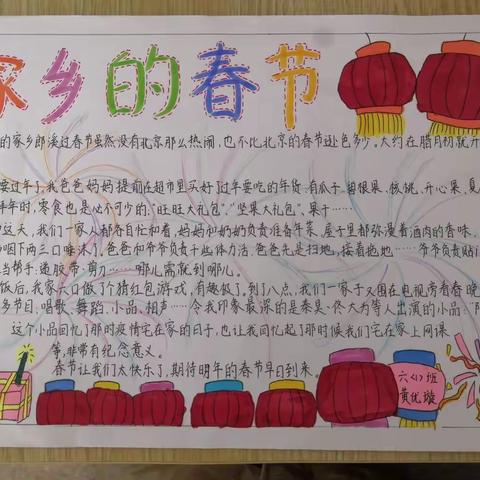 家乡的春节
的家乡郎溪过春节虽然没有北京那么热闹,也不比北京的春节逊色多少。大约在腊月初就开
要过年了,我爸爸妈妈提前在超市里买好了过年要吃的年货,有瓜子、碧根果、核桃、开心果、夏
年时,零食也是必不可少的:“旺旺大礼包”、“坚果大礼包”、果干……
这天,我们一家人都各自忙和着,妈妈和奶奶负责准备年菜,屋子里都弥漫着酒肉的香味,
咽下两三口唾沫了。爸爸和爷爷负责干些体力活,爸爸先是扫地,接着拖地……爷爷负责贴
当帮手:递胶带、剪刀……哪儿需就到哪儿。
饭后,我家六口做了个猜红包游戏,有趣极了,到了八点,我们一家子又围在电视旁看春晚
多节目、唱歌、舞蹈、小品、相声……令我印象最深的是秦昊·佟大为等人出演的小品:
这个小品回忆了那时疫情宅在家的日子,也让我回忆起了那时候我们宅在家上网课
等,非常有纪念意义。
春节让我们太快乐了,期待明年的春节早日到来。
六<1>班
黄优璇